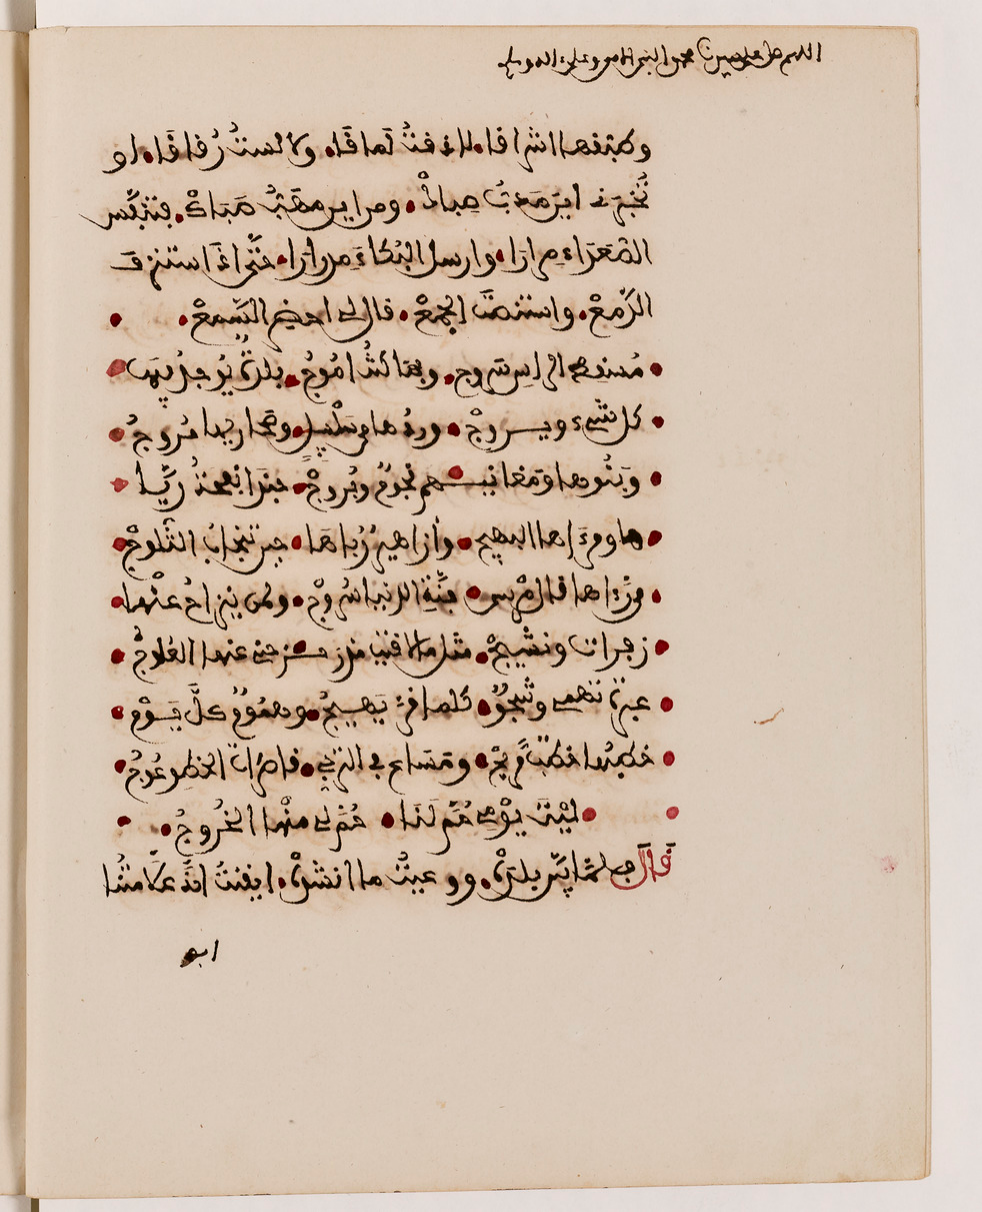 اللهم صل على سيدنا محمد النبي الامي وعلى اله وسلم
وطبقها اشراقا. لا ذقت لماقا. ولا لست رقاقا. او
تخبرني اين مدب صباك. ومن اين مهب صباك. فتنفس
الصعداء مرارا. وارسل البكاء مدرارا. حتى اذا استنزف
الدمع. واستنصت الجمع. قال لي احضر السمع.
مسقط الراس سروج. وبها كنت اموج. بلدة يوجد فيها
كل شيء ويروج. وردها من سلسبيل. وصحاريها مروج
وبنوها ومغانيهم نجوم وبروج. حبذا نفحة ريا
ها ومرءاها البهيج. وازاهير رباها. حين تنجاب الثلوج
من رءاها قال مرسى. جنة الدنيا سروج. ولمن ينزاح عنها
زفرات ونشيج. مثل ما لاقيت مذ زحزحني عنها العلوج
عبرة تهمي وشجو. كلما قر يهيج. وهموم كل يوم
خطبها خطب مريج. ومساع في الترجي. قاصرات الخطو عوج
ليت يومي حم لنا. حم لي منها الخروج.
قال فلما بين بلده. ووعيت ما انشده. ايقنت انه علامتنا
ابو